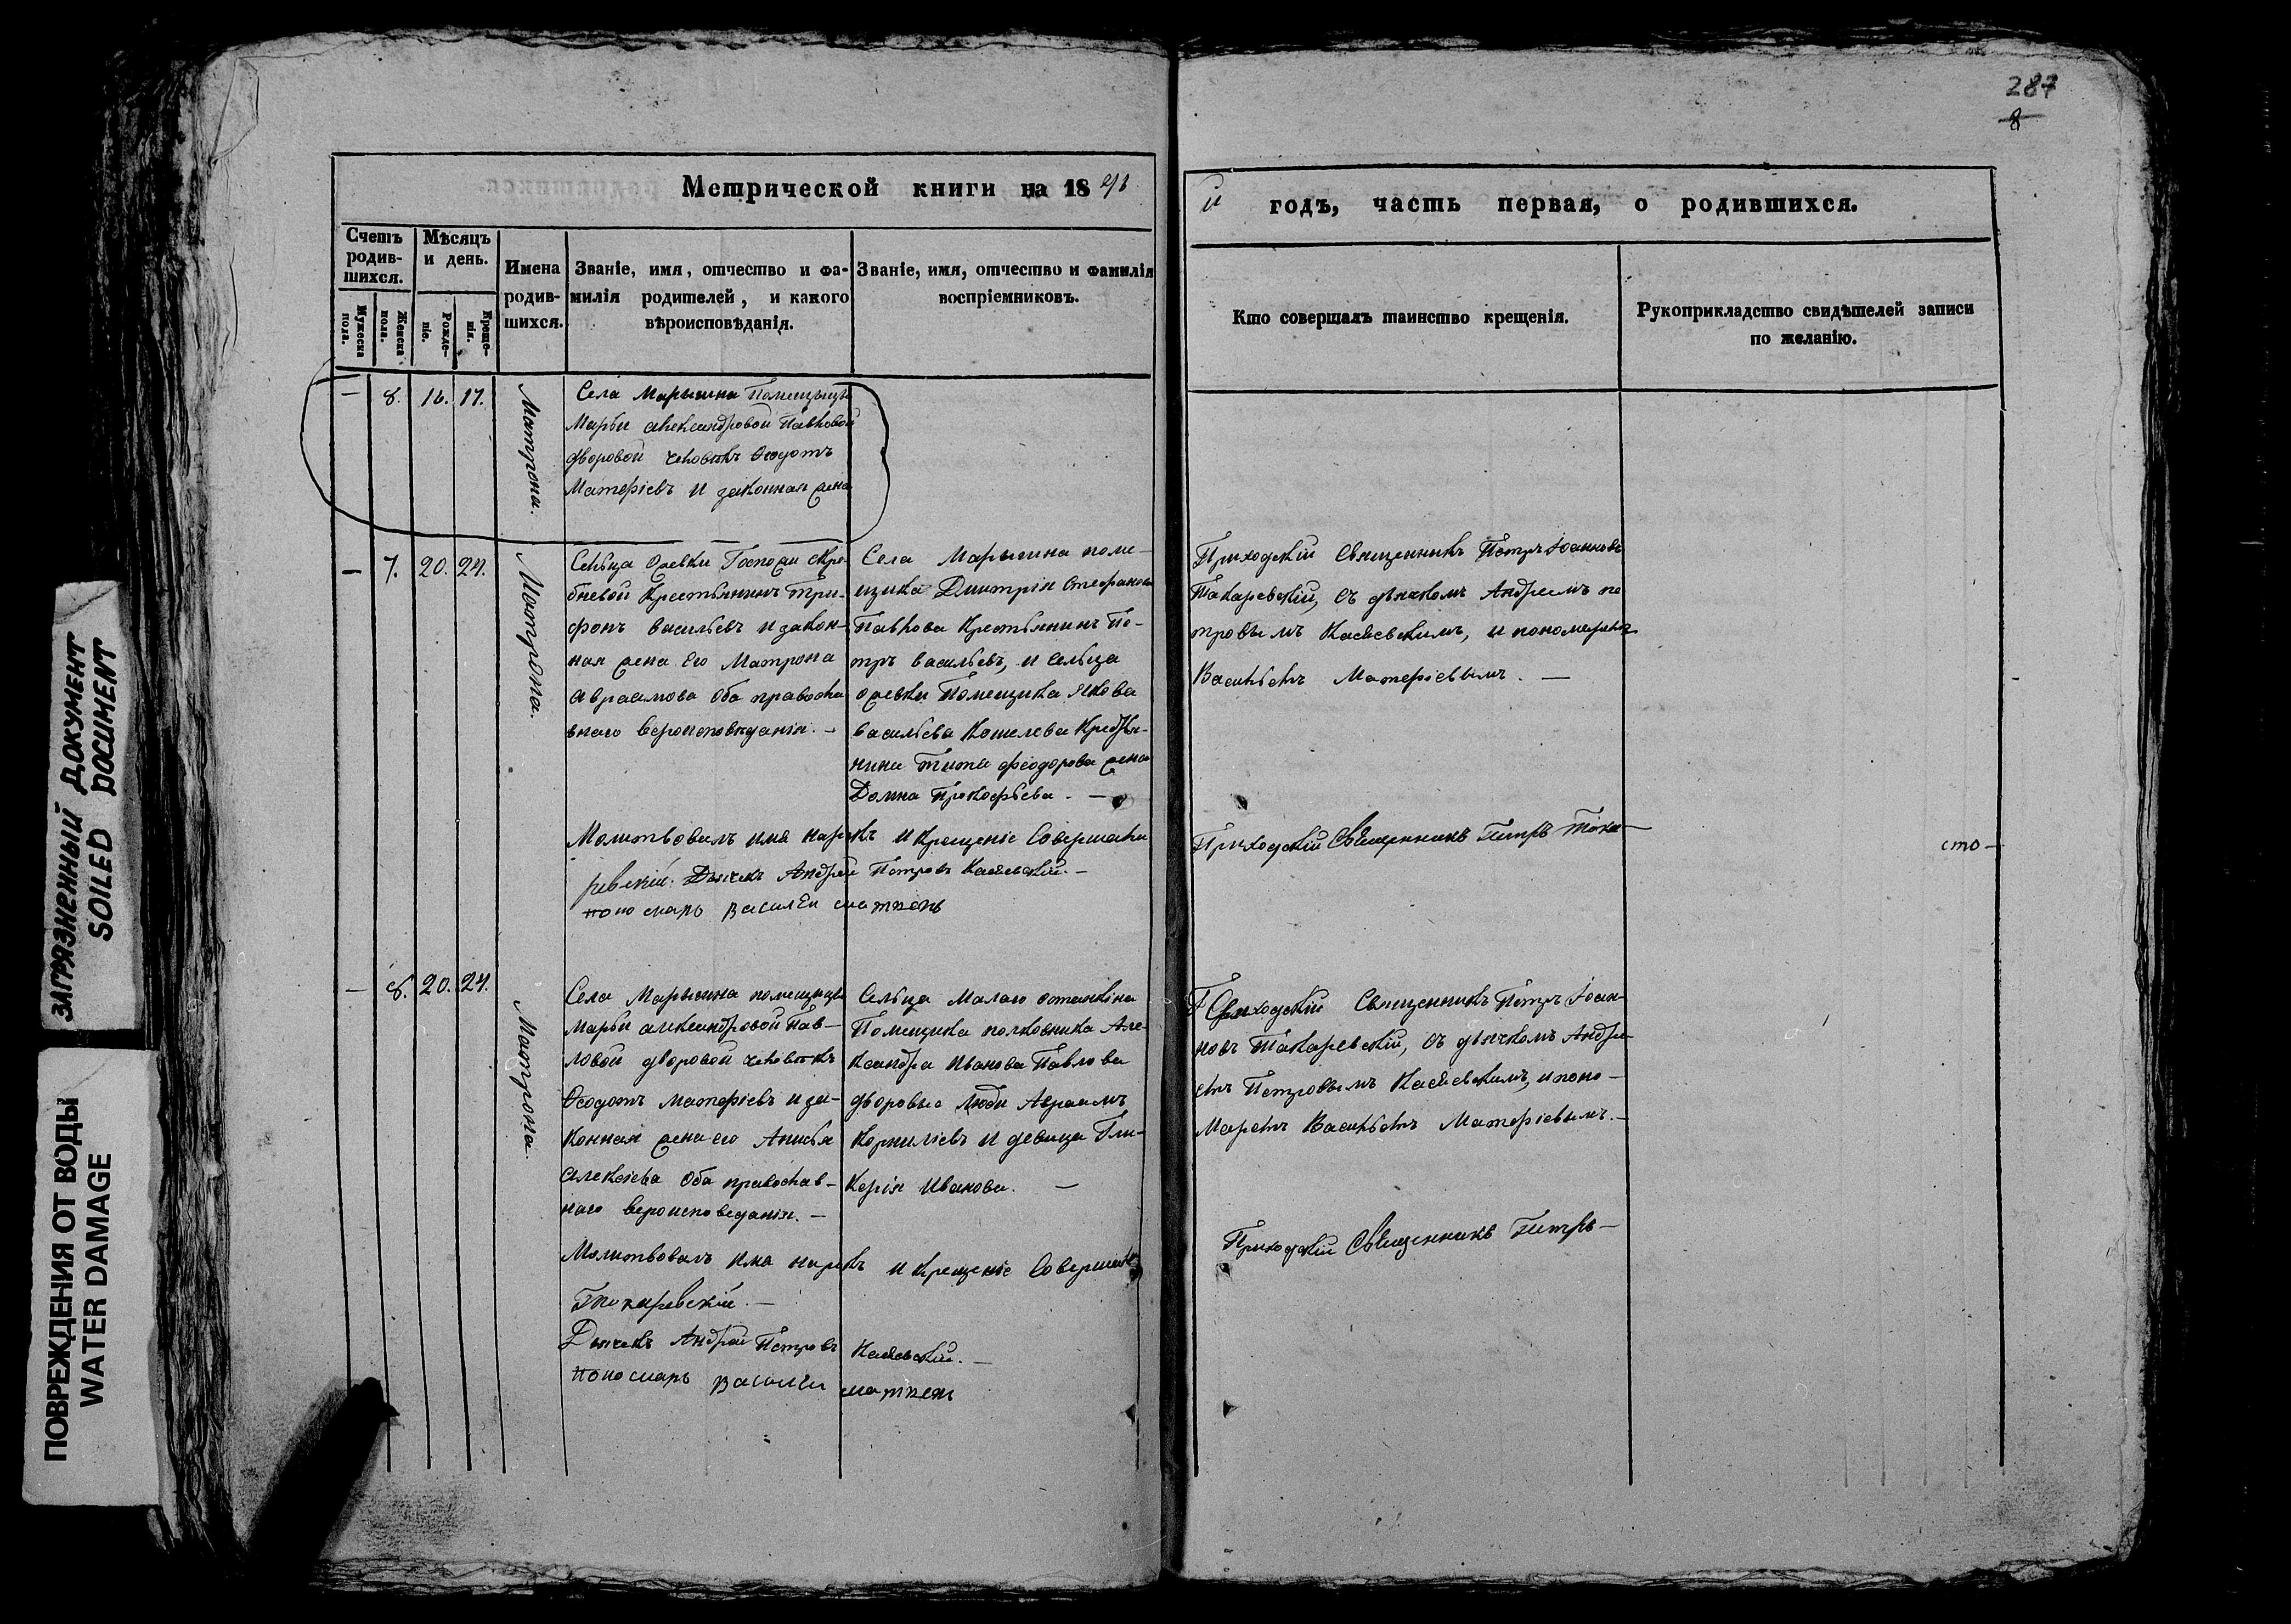 287
8
Метрической книги на 18
й годъ, часть первая, о родившихся.
Счетъ родив-шихся.
Мѣсяцъ и день.
Мужеска пола.
Женска пола.
Рожде-нія.
Креще-нія.
Имена родив-шихся.
Званіе, имя, отчество и фа-
милія родителей, и какого
вѣроисповѣданія.
Званіе, имя, отчество и фамилія
воспріемниковъ.
Кто совершалъ таинство крещенія.
Рукоприкладство свидѣтелей записи
по желанію.
— 8. 16. 17. Матрона.
Села Марьина Помещицы
Марьи Александровой Павловой
дворовой человѣкъ Ѳеодотъ
Матфіевъ и законная жена
— 7. 20. 24. Матрона.
Сельца
крестьянинъ Три-
фонъ Васильевъ и закон-
ная жена его Матрона
Авраамова оба правосла
внаго вероисповѣданія. —
Села Марьина поме-
щика Дмитрія Стефанова
Павлова крестьянинъ Пе-
тръ Васильевъ, и сельца
Помещика Якова
Васильева Кошелева крестья-
нина Тита Феодорова жена
Домна Прокофьева. —
Приходскій Священникъ Петръ Іоанновъ
Токаревскій, съ дьячкомъ Андреемъ Пе
тровымъ и пономаремъ
Васильемъ Матфіевымъ. —
Молитвовалъ имя нарекъ и крещеніе Совершалъ Приходскій Священникъ Петръ Тока-
ревскій. Дьячекъ Андрей Петровъ
пономарь Василеи матвеевъ
сто —
— 8. 20. 24. Матрона.
Села Марьина помещицы
Марьи Александровой Пав-
ловой дворовой человѣкъ
Ѳеодотъ Матфіевъ и за-
конная жена его Анисья
Алексѣева оба православ-
наго вероисповеданія. —
Сельца Малаго Останкина
Помещика полковника Але-
ксандра Иванова Павлова
дворовые люди Авраамъ
Корнилієвъ и девица Гли-
керія Иванова. —
Приходскій Священникъ Петръ Іоан-
новъ Токаревскій, съ дьячкомъ Андре-
емъ Петровымъ и поно-
маремъ Васильемъ Матфіевымъ. —
Молитвовалъ има нарекъ и крещеніе Совершалъ Приходскій Священникъ Петръ —
Токаревскій. —
Дьячекъ Андрей Петровъ
пономарь Василеи матвеевъ
ЗАГРЯЗНЕННЫЙ ДОКУМЕНТ
SOILED DOCUMENT
ПОВРЕЖДЕНИЯ ОТ ВОДЫ
WATER DAMAGE